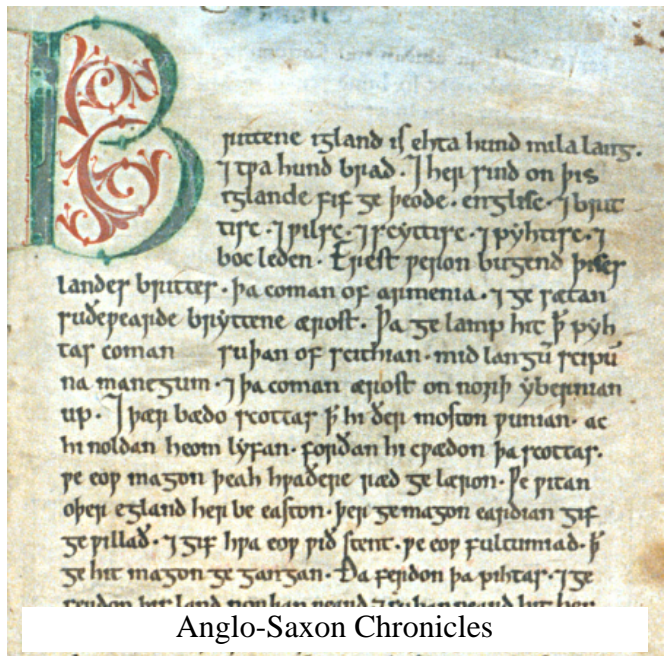 Brittene igland is ehta hund mila lang.
⁊ tƿa hund brad. ⁊ her sind on þis
iglande fif ge þeode. englisc. ⁊ brit
tisc. ⁊ ƿilsc. ⁊ scyttisc. ⁊ pyhtisc. ⁊
boc leden. Erest ƿeron bugend þises
landes brittes. þa coman of armenia. ⁊ ge sætan
suðeƿearde bryttene ærost. Þa ge lamp hit þ̄ pyh
tas coman suþan of scithian. mid langū scipū
na manegum. ⁊ þa coman ærost on norþ ybernian
up. ⁊ þær bædo scottas þ̄ hi ðer moston ƿunian. ac
hi noldan heom lyfan. forðan hi cƿædon þa scottas.
ƿe eoƿ magon þeah hƿaðere ræd ge læron. Ƿe ƿitan
oþer egland her be easton. þer ge magon eardian gif
ge ƿillað. ⁊ gif hƿa eoƿ ƿið stent. ƿe eoƿ fultumiað. þ̄
ge hit magon ge gangan. Ða ferdon þa pihtas. ⁊ ge
Anglo-Saxon Chronicles